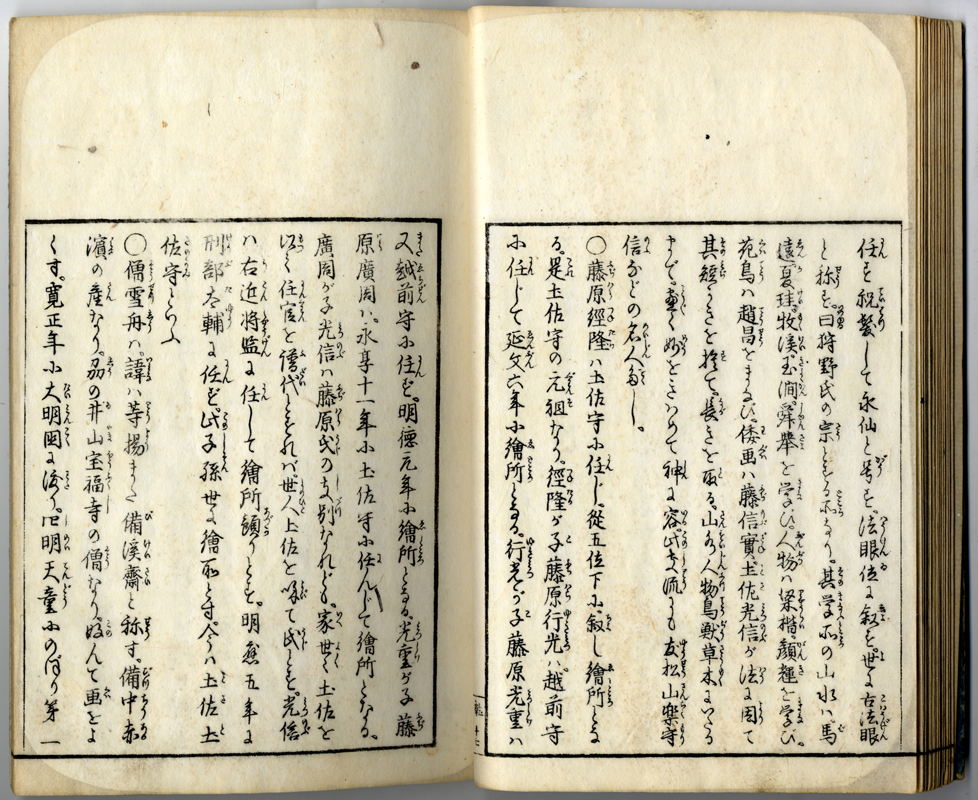 任ず祝髪して永仙と号す。法眼位に叙す。世に古法眼
と称す。曰狩野氏の宗とする所なり。其学所の山水ハ馬
遠夏珪。牧渓玉澗。舜挙を学び。人物ハ梁楷。顔輝を学び。
花鳥ハ趙昌をまなび。倭画ハ藤信實。土佐光信が法に因て
其短きを捨て。長きを取る。山水人物鳥獣草木にいたる
まで。画く妙をきハめて神に容。此支流にも友松山楽守
信などの名人多し。
〇藤原經隆ハ土佐守に任じ。従五位下に叙し繪所となる
る。是土佐守の元祖なり。經隆が子藤原行光ハ。越前守
に任じて延文六年に繪所となる。行光が子藤原光重ハ
又越前守に任ず。明徳元年に繪所となる。光重が子藤
原廣周ハ。永享十一年に土佐守に任んじて繪所となる。
廣周が子光信ハ藤原氏の支別なれども。家世〻土佐を
以て任官を譜代とすれバ世人土佐を以て氏とす。光信
ハ右近将監に任して繪所預りとす。明應五年に
刑部大輔に任ず。此子孫世〻繪所とす。今ハ土佐土
佐守といふ
〇僧雪舟ハ。諱ハ等揚また備渓齋と称す。備中赤
濱の産なり。刕の井山宝福寺の僧なり。好んで画をよ
くす。寛正年に大明国に渡り。四明天童にのぼり第一